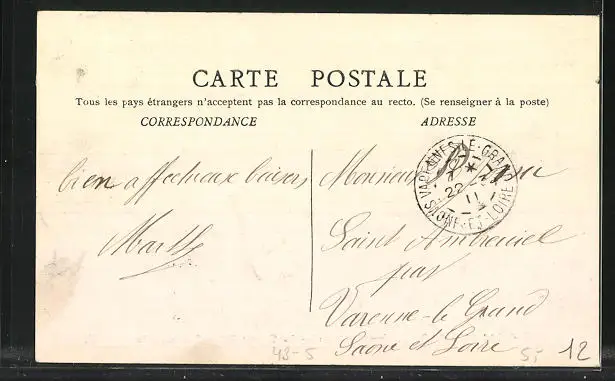 CARTE POSTALE
Tous les pays étrangers n'acceptent pas la correspondance au recto. (Se renseigner à la poste)
CORRESPONDANCE
ADRESSE
bien affectueux baisers
Monsieur
VARENNES-LE-GRAND
22
11
SAONE-ET-LOIRE
Saint Ambreuil
par
Varenne-le Grand
Saone et Loire
43-5
5,-
12